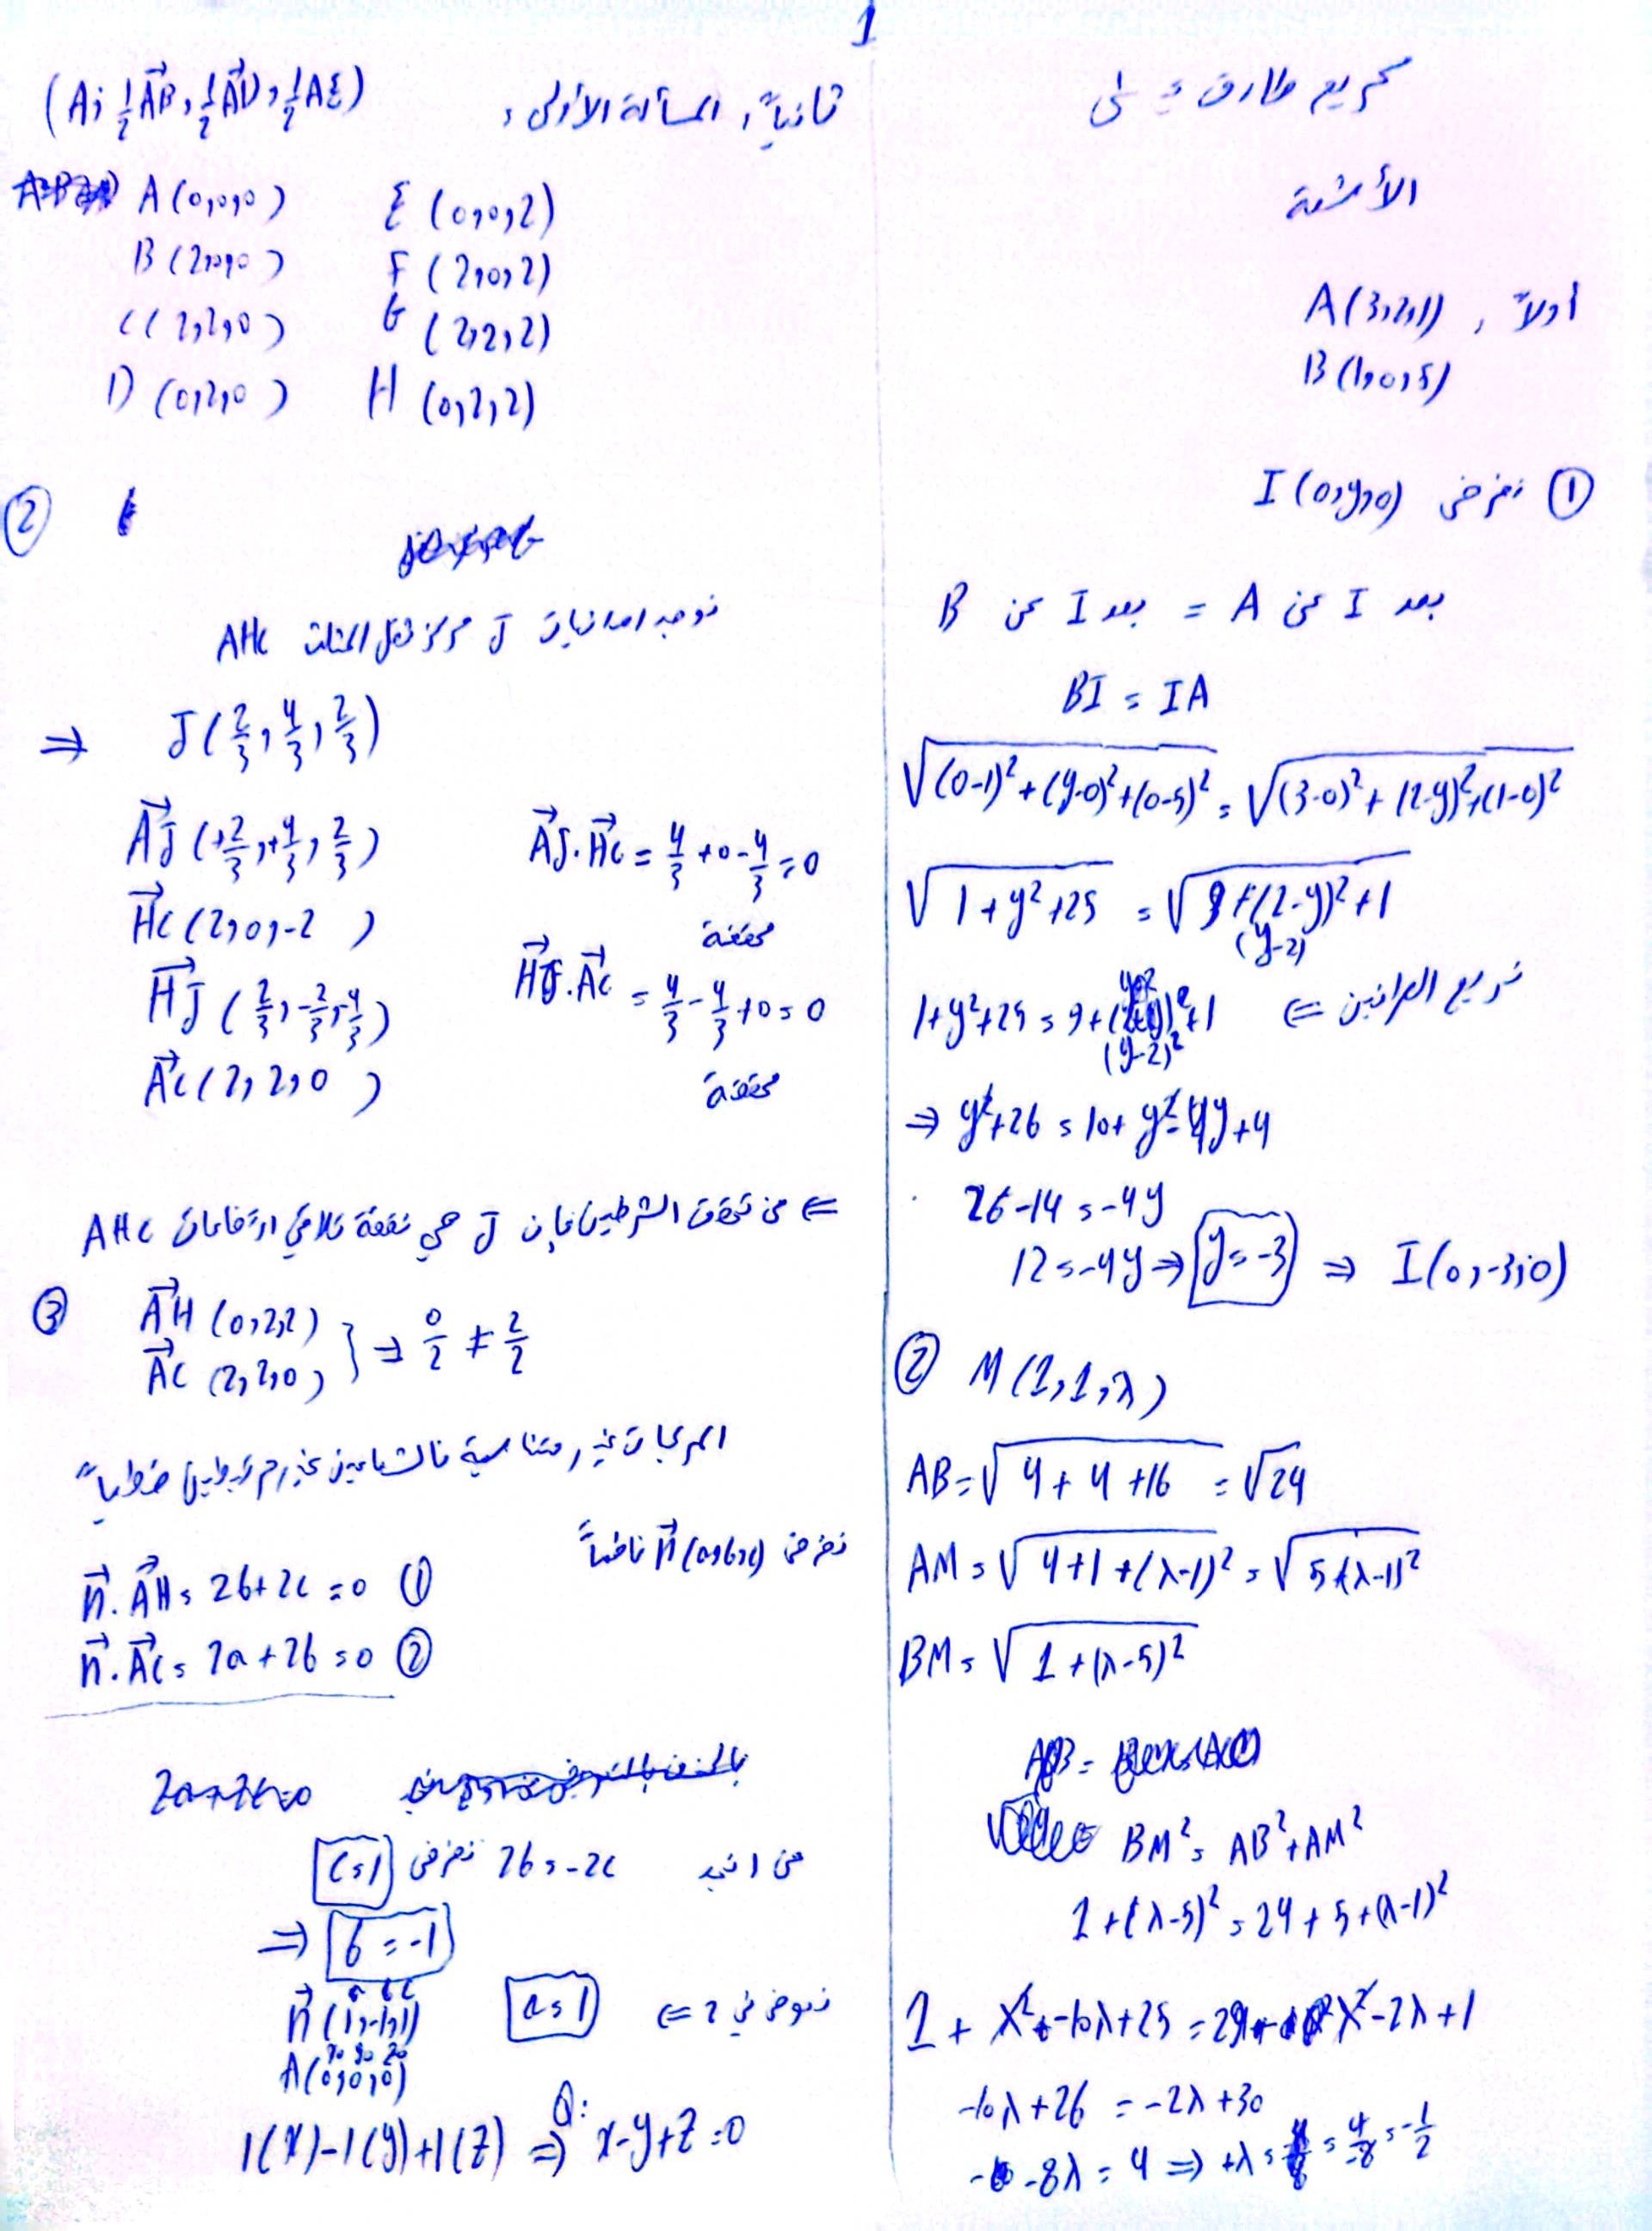 1
كريم طارق شلى
الأسئلة
أولاً, A(3,2,1)
B(1,0,5)
① نفرض I(0,y,0)
بعد I عن A = بعد I عن B
BI = IA
√((0-1)²+(y-0)²+(0-5)²) = √((3-0)²+(2-y)²+(1-0)²)
√(1+y²+25) = √(9+(2-y)²+1)
(y-2)
نربع الطرفين ⇐ 1+y²+25 = 9+(y-2)²+1
⇒ y²+26 = 10+y²-4y+4
26-14 = -4y
12 = -4y ⇒ y = -3 ⇒ I(0,-3,0)
② M(1,1,λ)
AB = √(4+4+16) = √24
AM = √(4+1+(λ-1)²) = √(5+(λ-1)²)
BM = √(1+(λ-5)²)
BM² = AB²+AM²
1+(λ-5)² = 24+5+(λ-1)²
1+λ²-10λ+25 = 29+λ²-2λ+1
-10λ+26 = -2λ+30
-8λ = 4 ⇒ +λ = 4/-8 = -1/2
ثانياً, المسألة الأولى, (A; ½AB, ½AD, ½AE)
A(0,0,0) E(0,0,2)
B(2,0,0) F(2,0,2)
C(2,2,0) G(2,2,2)
D(0,2,0) H(0,2,2)
②
نوجد احداثيات J مركز ثقل المثلث AHC
⇒ J(2/3, 4/3, 2/3)
AJ(+2/3, +4/3, 2/3) AJ.HC = 4/3+0-4/3 = 0
HC(2,0,-2) محققة
HJ(2/3, -2/3, -4/3) HJ.AC = 4/3-4/3+0 = 0
AC(2,2,0) محققة
⇐ من تحقق الشرطين فإن J هي نقطة تلاقي ارتفاعات AHC
③ AH(0,2,2)
AC(2,2,0) } ⇒ 0/2 ≠ 2/2
المركبات غير متناسبة فالشعاعين غير مرتبطين خطياً
نفرض n(a,b,c) ناظماً
n.AH = 2b+2c = 0 ①
n.AC = 2a+2b = 0 ②
من ① نجد 2b = -2c نفرض c=1
⇒ b = -1
نعوض في 2 ⇐ a=1
n(1,-1,1)
A(0,0,0)
1(x)-1(y)+1(z) ⇒ Q: x-y+z=0